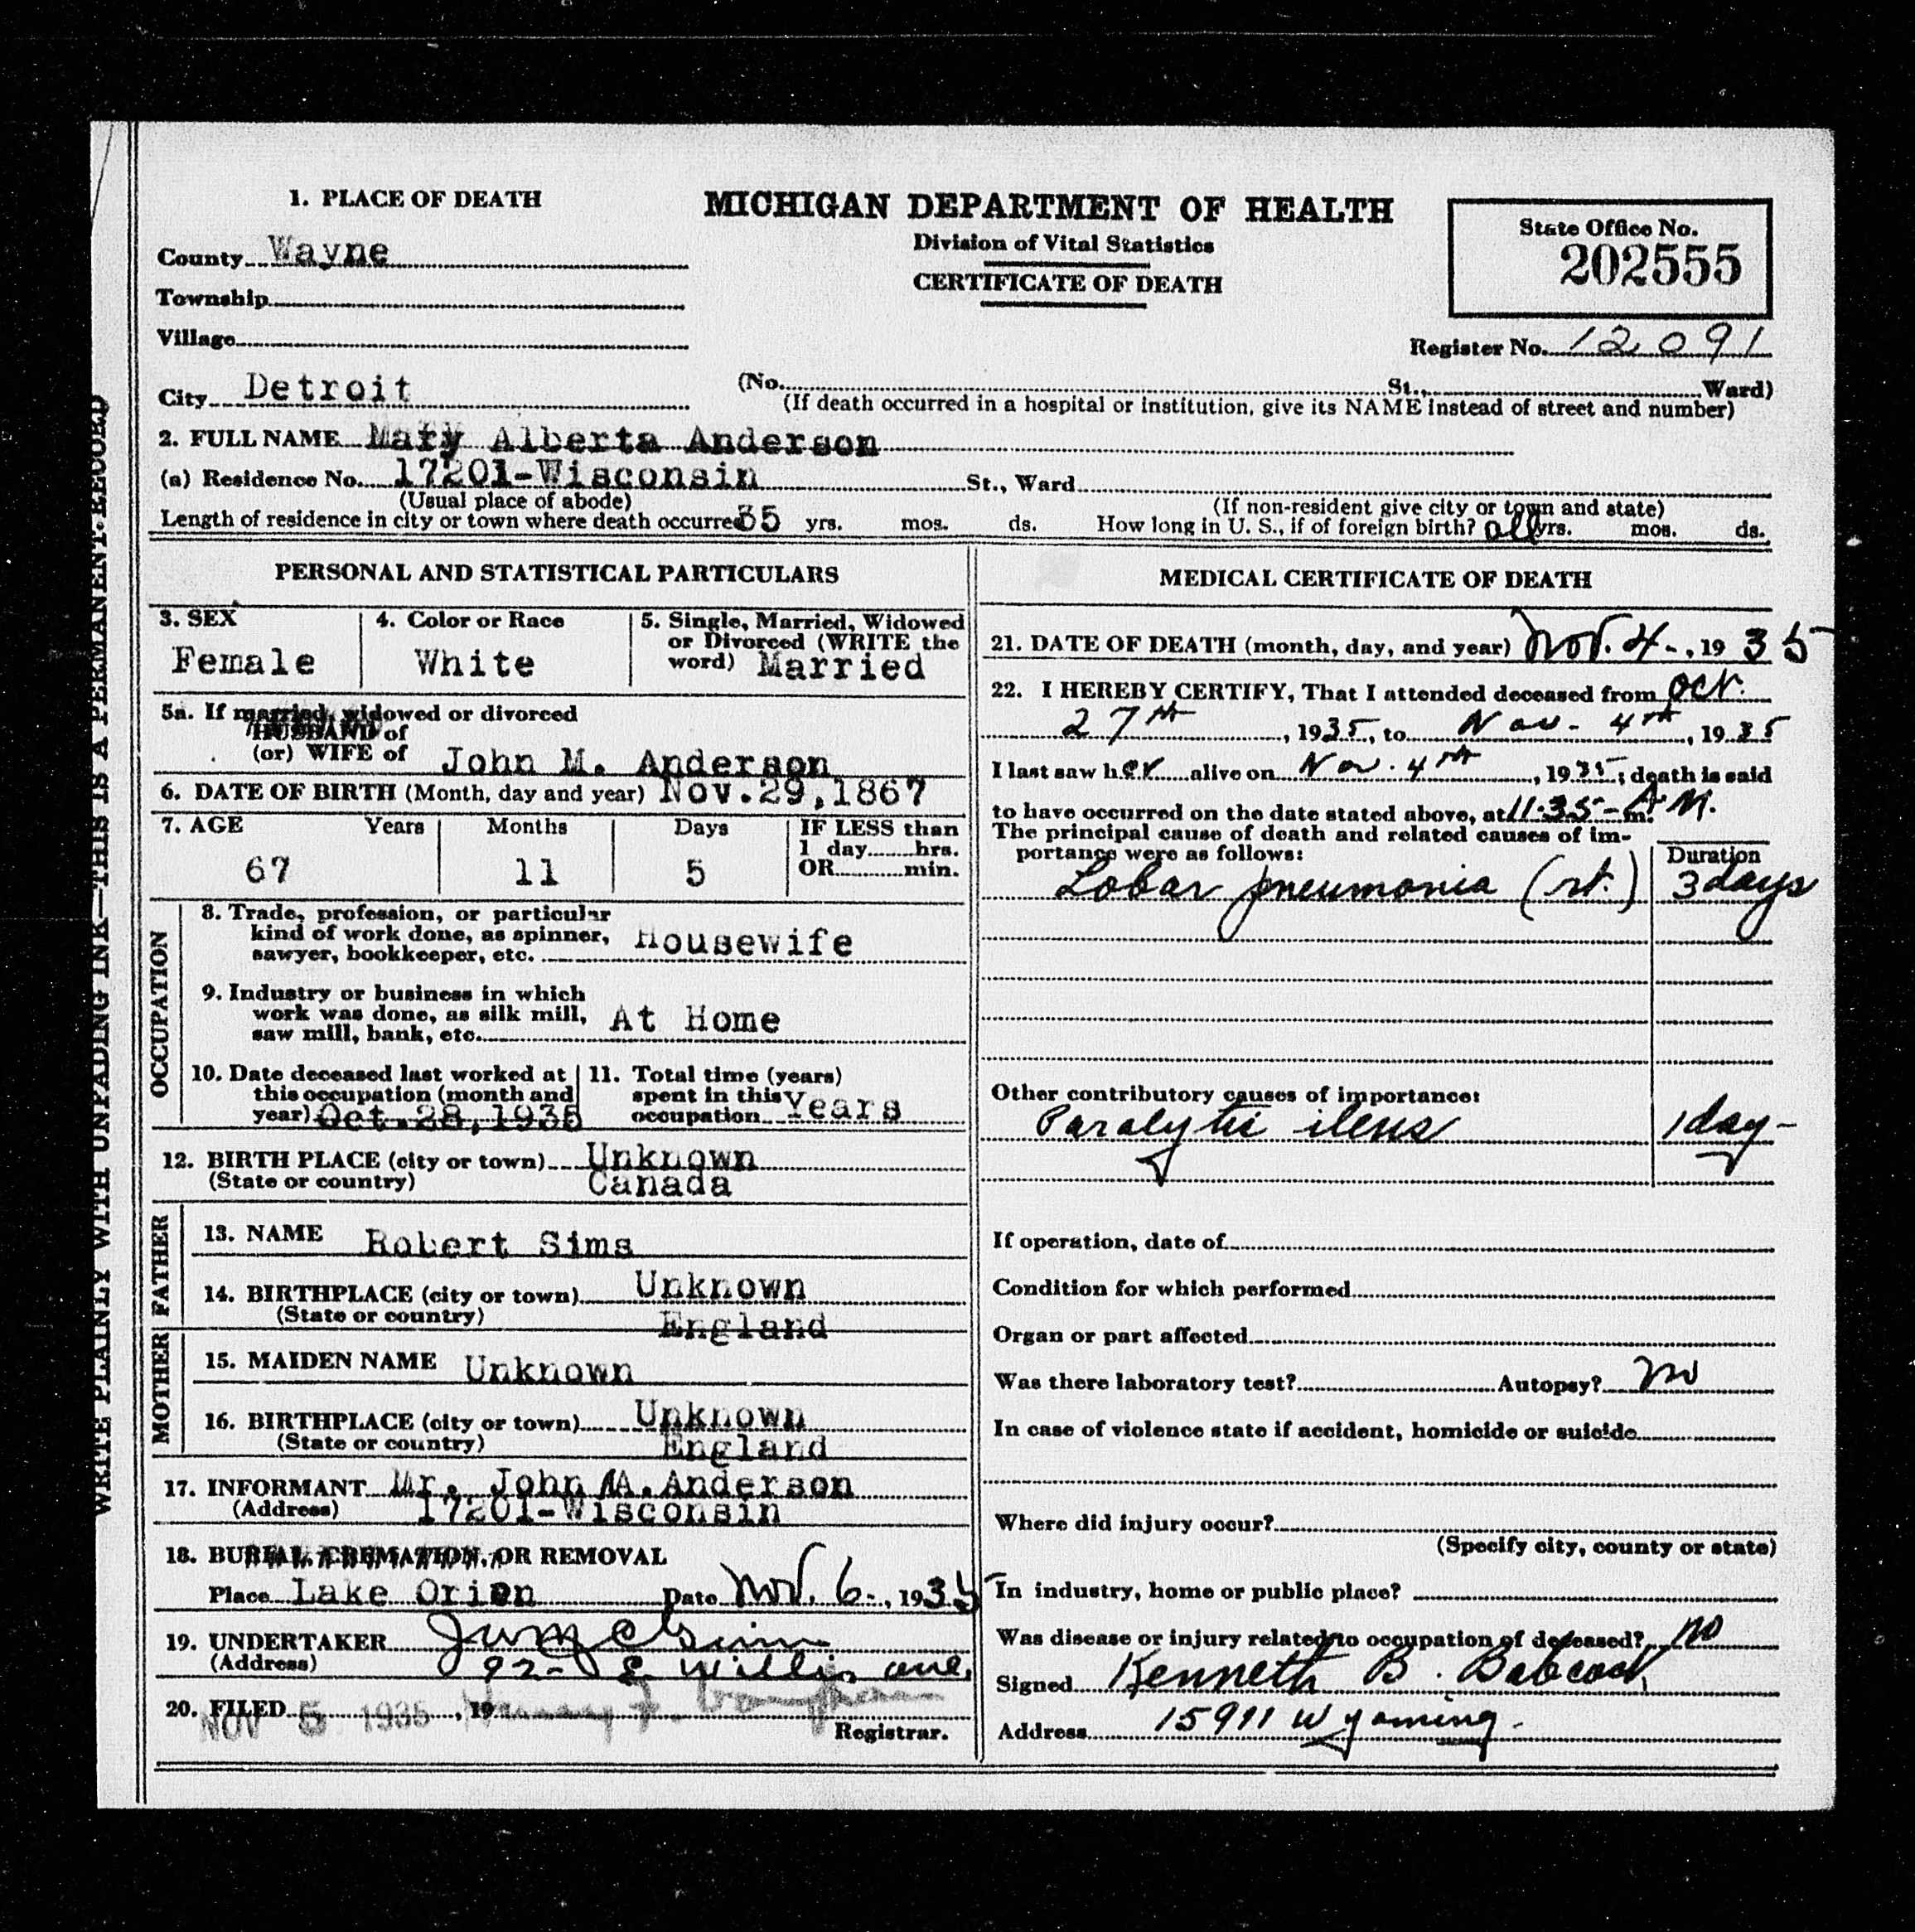 1. PLACE OF DEATH
MICHIGAN DEPARTMENT OF HEALTH
Division of Vital Statistics
CERTIFICATE OF DEATH
State Office No.
202555
County Wayne
Township
Village
Register No. 12091
City Detroit
(No. St., Ward)
(If death occurred in a hospital or institution, give its NAME instead of street and number)
2. FULL NAME Mary Alberta Anderson
(a) Residence No. 17201-Wisconsin St., Ward
(Usual place of abode) (If non-resident give city or town and state)
Length of residence in city or town where death occurred 35 yrs. mos. ds. How long in U. S., if of foreign birth? all yrs. mos. ds.
WRITE PLAINLY WITH UNFADING INK—THIS IS A PERMANENT RECORD
PERSONAL AND STATISTICAL PARTICULARS
3. SEX
Female
4. Color or Race
White
5. Single, Married, Widowed
or Divorced (WRITE the
word) Married
5a. If married, widowed or divorced
HUSBAND of
(or) WIFE of John M. Anderson
6. DATE OF BIRTH (Month, day and year) Nov.29,1867
7. AGE Years Months Days IF LESS than
1 day hrs.
OR min.
67 11 5
OCCUPATION
8. Trade, profession, or particular
kind of work done, as spinner,
sawyer, bookkeeper, etc. Housewife
9. Industry or business in which
work was done, as silk mill,
saw mill, bank, etc. At Home
10. Date deceased last worked at
this occupation (month and
year) Oct.28,1935
11. Total time (years)
spent in this
occupation Years
12. BIRTH PLACE (city or town) Unknown
(State or country) Canada
FATHER
13. NAME Robert Sims
14. BIRTHPLACE (city or town) Unknown
(State or country) England
MOTHER
15. MAIDEN NAME Unknown
16. BIRTHPLACE (city or town) Unknown
(State or country) England
17. INFORMANT Mr. John M. Anderson
(Address) 17201-Wisconsin
18. BURIAL, CREMATION, OR REMOVAL
Place Lake Orion Date Nov. 6-, 1935
19. UNDERTAKER
(Address) 92- E Willis ave.
20. FILED NOV 5 1935, 19
Registrar.
MEDICAL CERTIFICATE OF DEATH
21. DATE OF DEATH (month, day, and year) Nov. 4-, 1935
22. I HEREBY CERTIFY, That I attended deceased from Oct.
27th, 1935, to Nov. 4th, 1935
I last saw her alive on Nov. 4th, 1935; death is said
to have occurred on the date stated above, at 11:35- A m. M.
The principal cause of death and related causes of im-
portance were as follows:
Duration
Lobar pneumonia (rt.) 3 days
Other contributory causes of importance:
Paralytic ileus 1 day-
If operation, date of
Condition for which performed
Organ or part affected
Was there laboratory test? Autopsy? no
In case of violence state if accident, homicide or suicide
Where did injury occur?
(Specify city, county or state)
In industry, home or public place?
Was disease or injury related to occupation of deceased? no
Signed Kenneth B. Babcock
Address 15911 Wyoming.